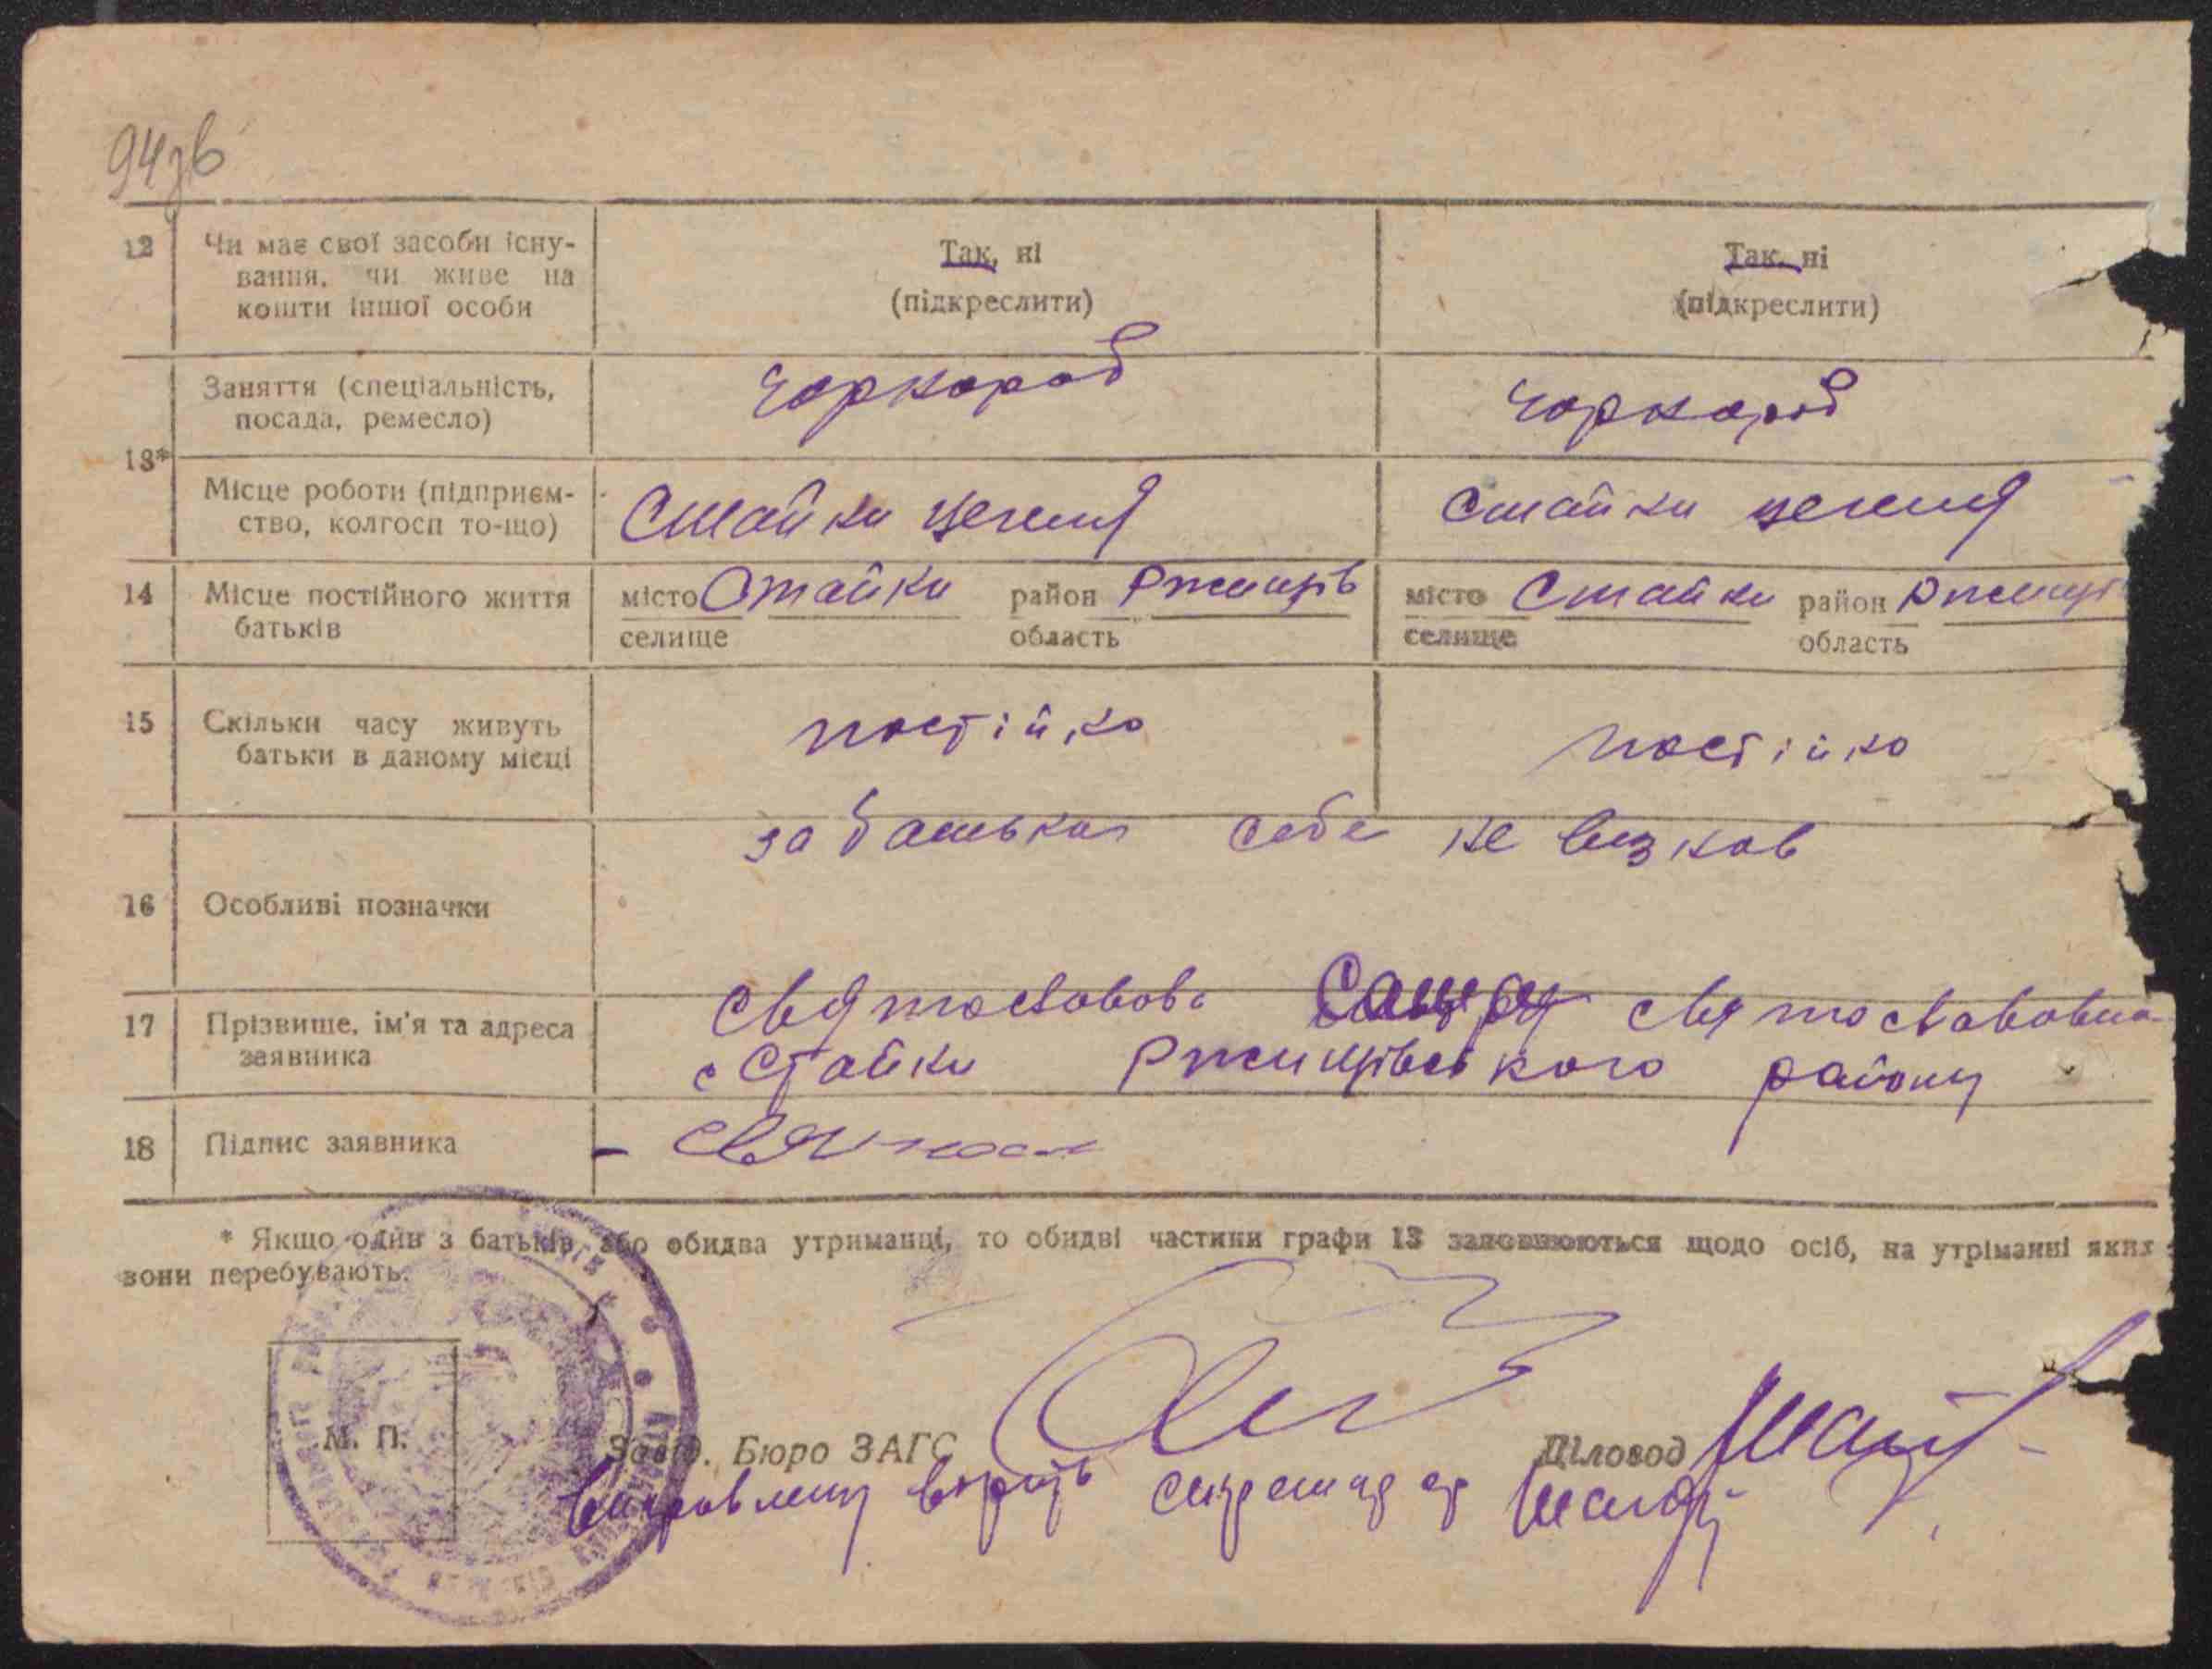 94зв
12 Чи має свої засоби існу- Так, ні Так, ні
вання, чи живе на (підкреслити) (підкреслити)
кошти іншої особи
Заняття (спеціальність, чорнороб чорнороб
посада, ремесло)
13*
Місце роботи (підприєм- Стайки цегельня Стайки цегельня
ство, колгосп то-що)
14 Місце постійного життя місто Стайки район Ржищів місто Стайки район Ржищі
батьків селище область селище область
15 Скільки часу живуть постійно постійно
батьки в даному місці
за батька себе не визнав
16 Особливі позначки
Святославова Святославовна
17 Прізвище, ім'я та адреса с Стайки Ржищівського району
заявника
18 Підпис заявника – Святосл
* Якщо один з батьків або обидва утриманці, то обидві частини графи 13 заповнюються щодо осіб, на утріманні яких
вони перебувають.
М. П. Завід. Бюро ЗАГС Діловод
вірить секретар